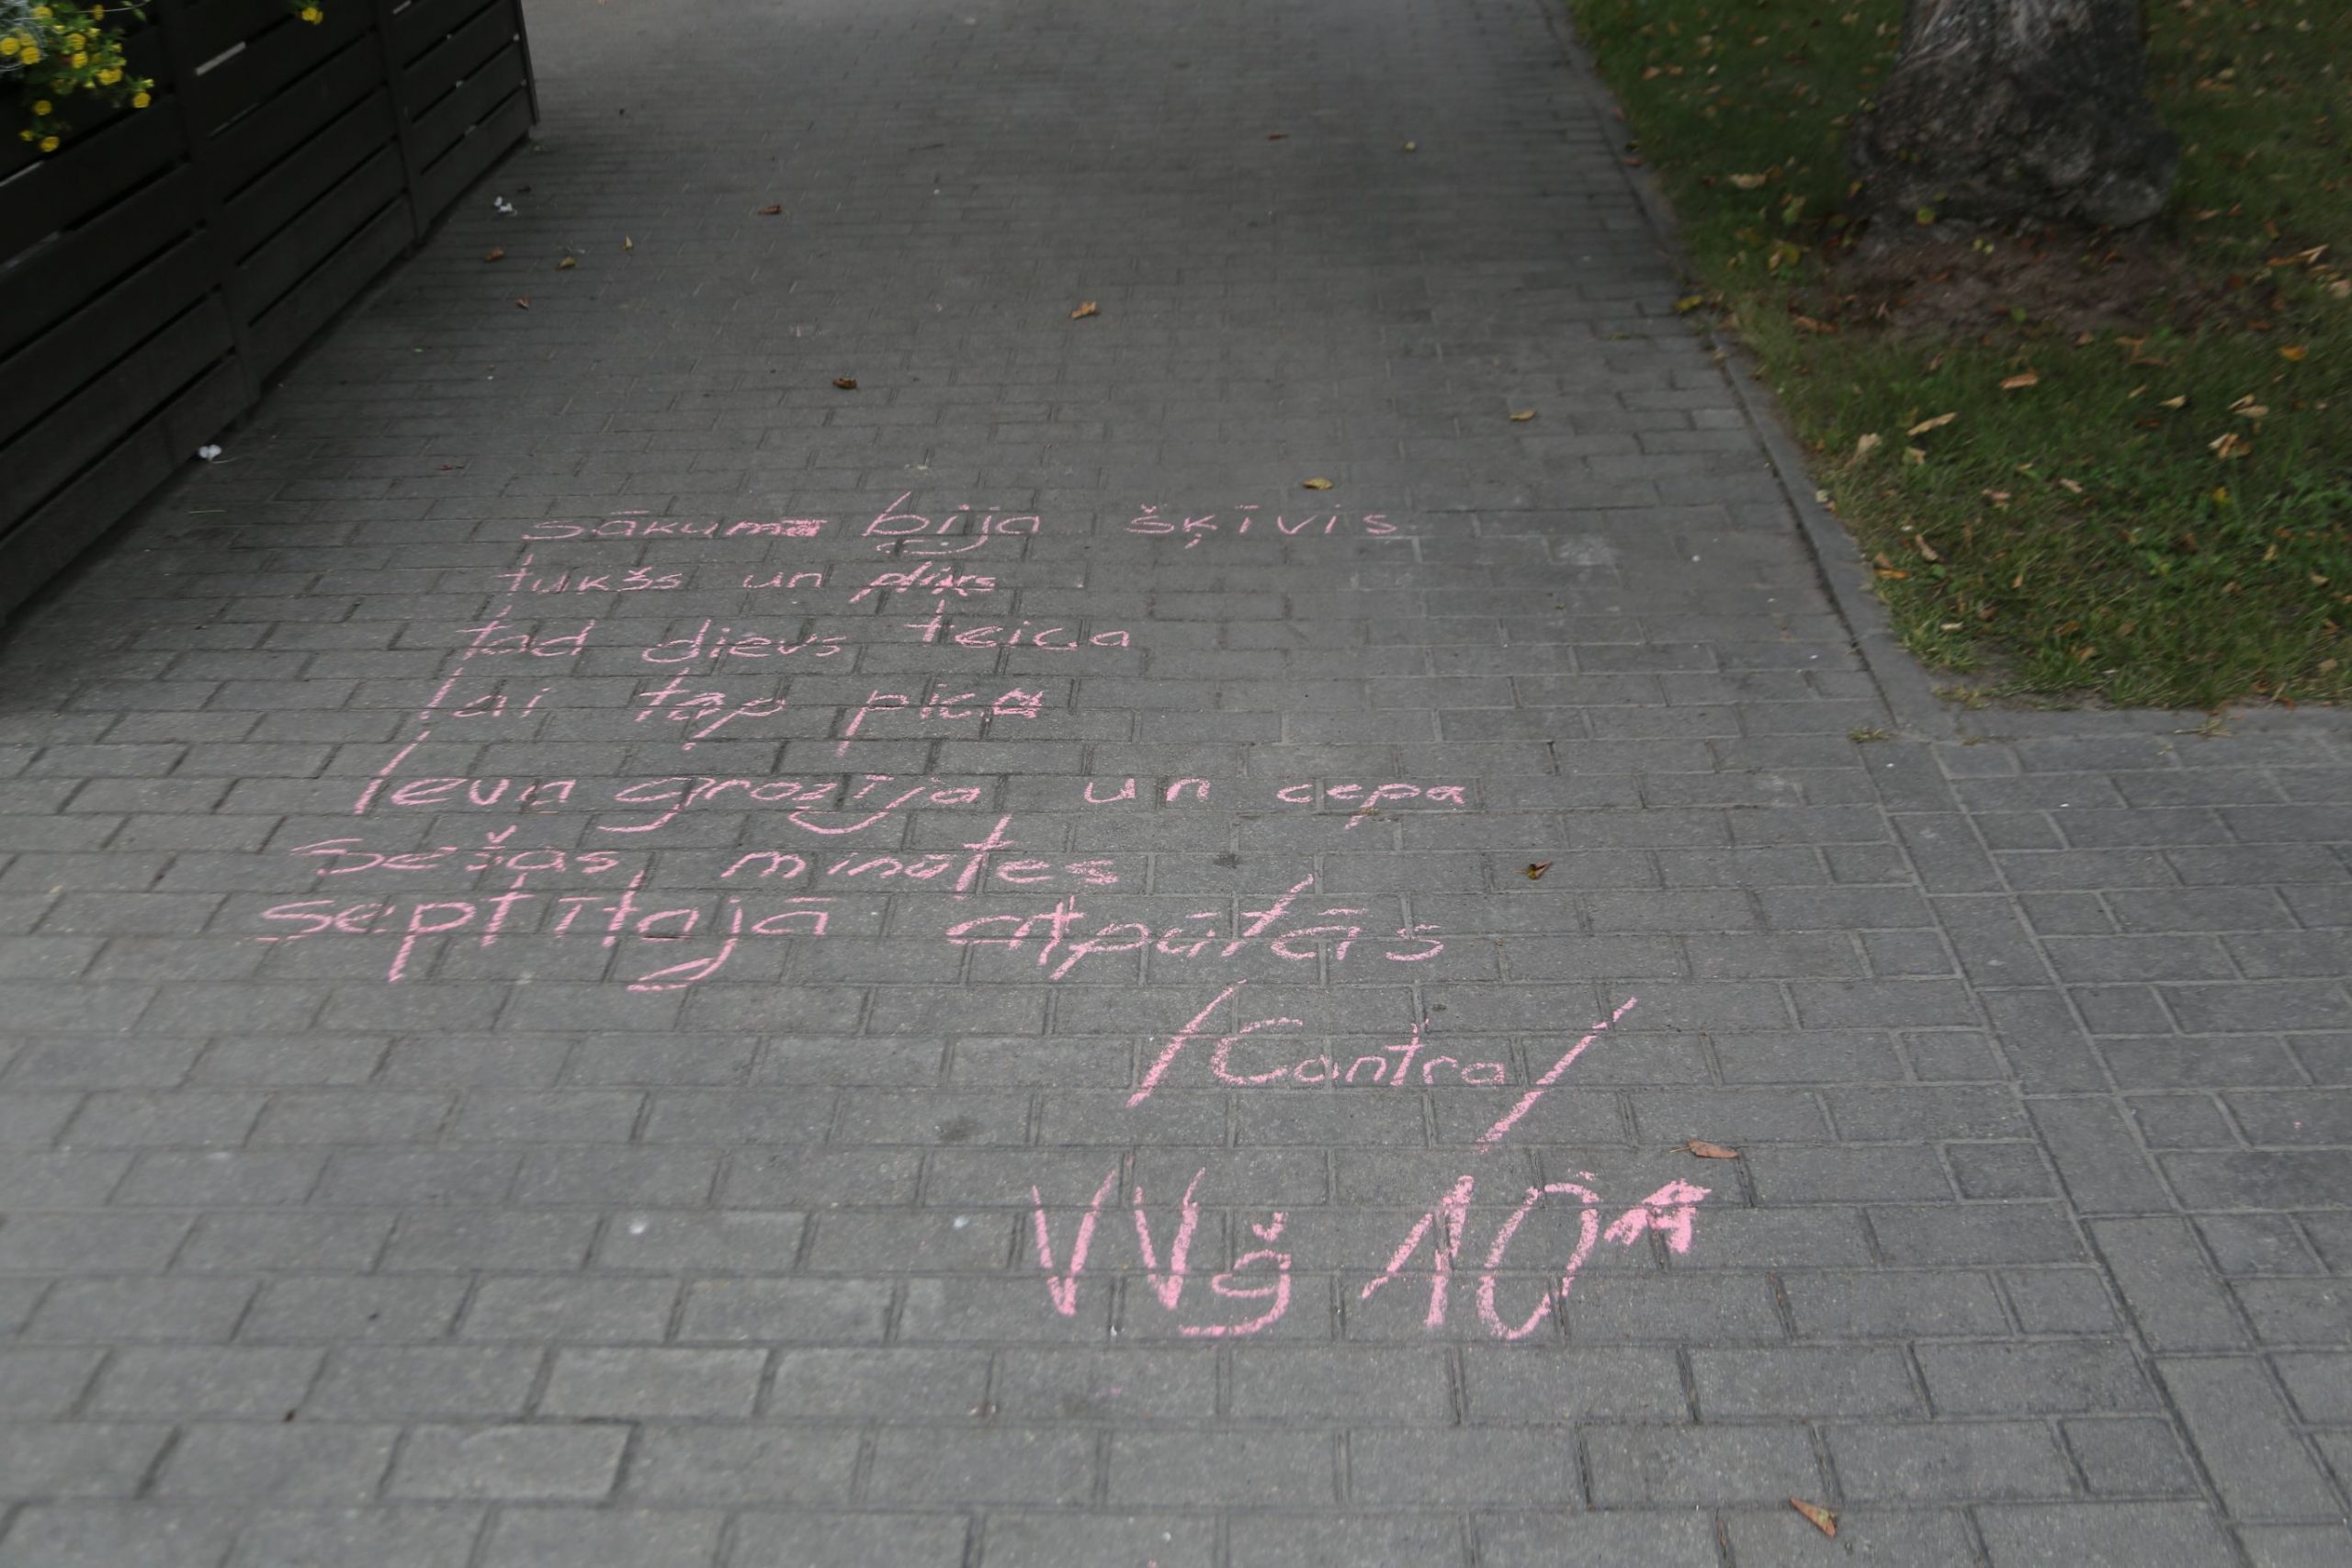 sākumā bija šķīvis
tukšs un pliks
tad dievs teica
lai top pica
Ieva grozīja un cepa
sešas minūtes
septītajā atpūtās
/Contra/
VVģ 10